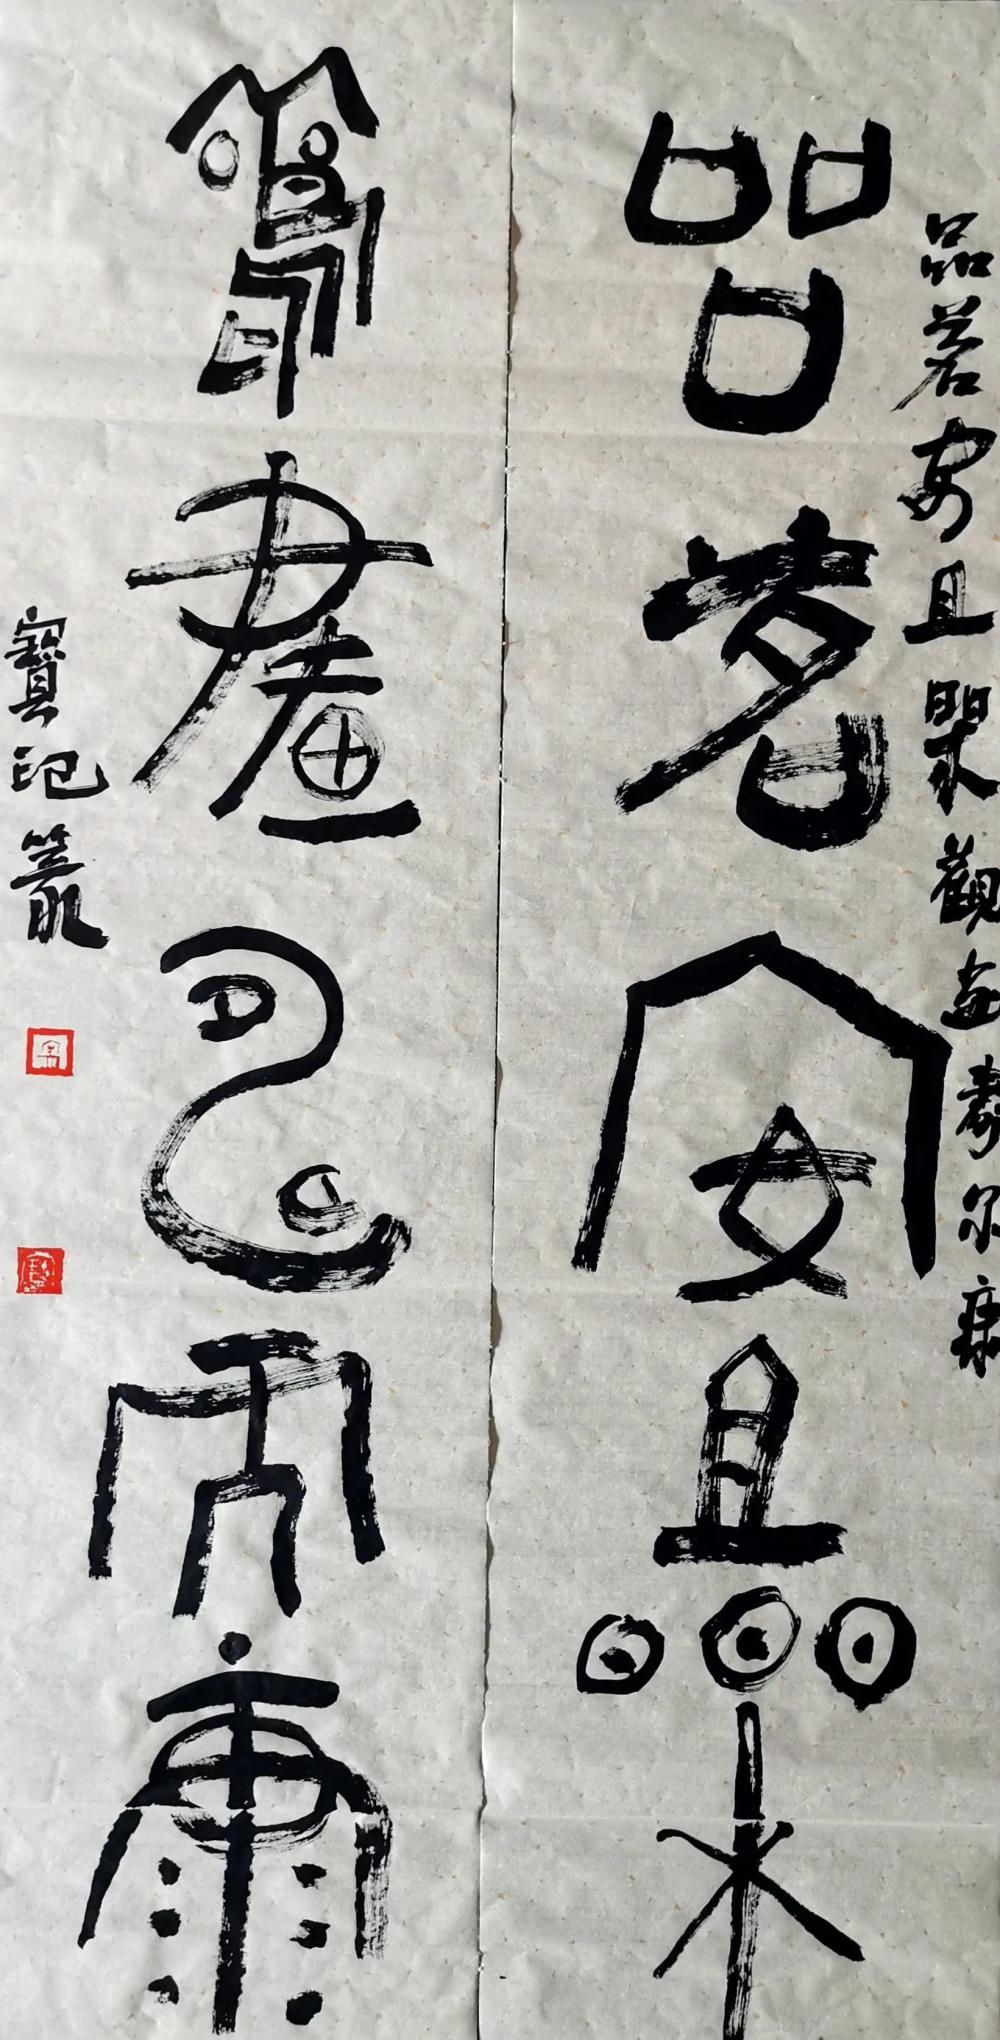 品茗安且樂
觀畫壽尔康
品茗安且樂觀畫壽尔康
寶記篆